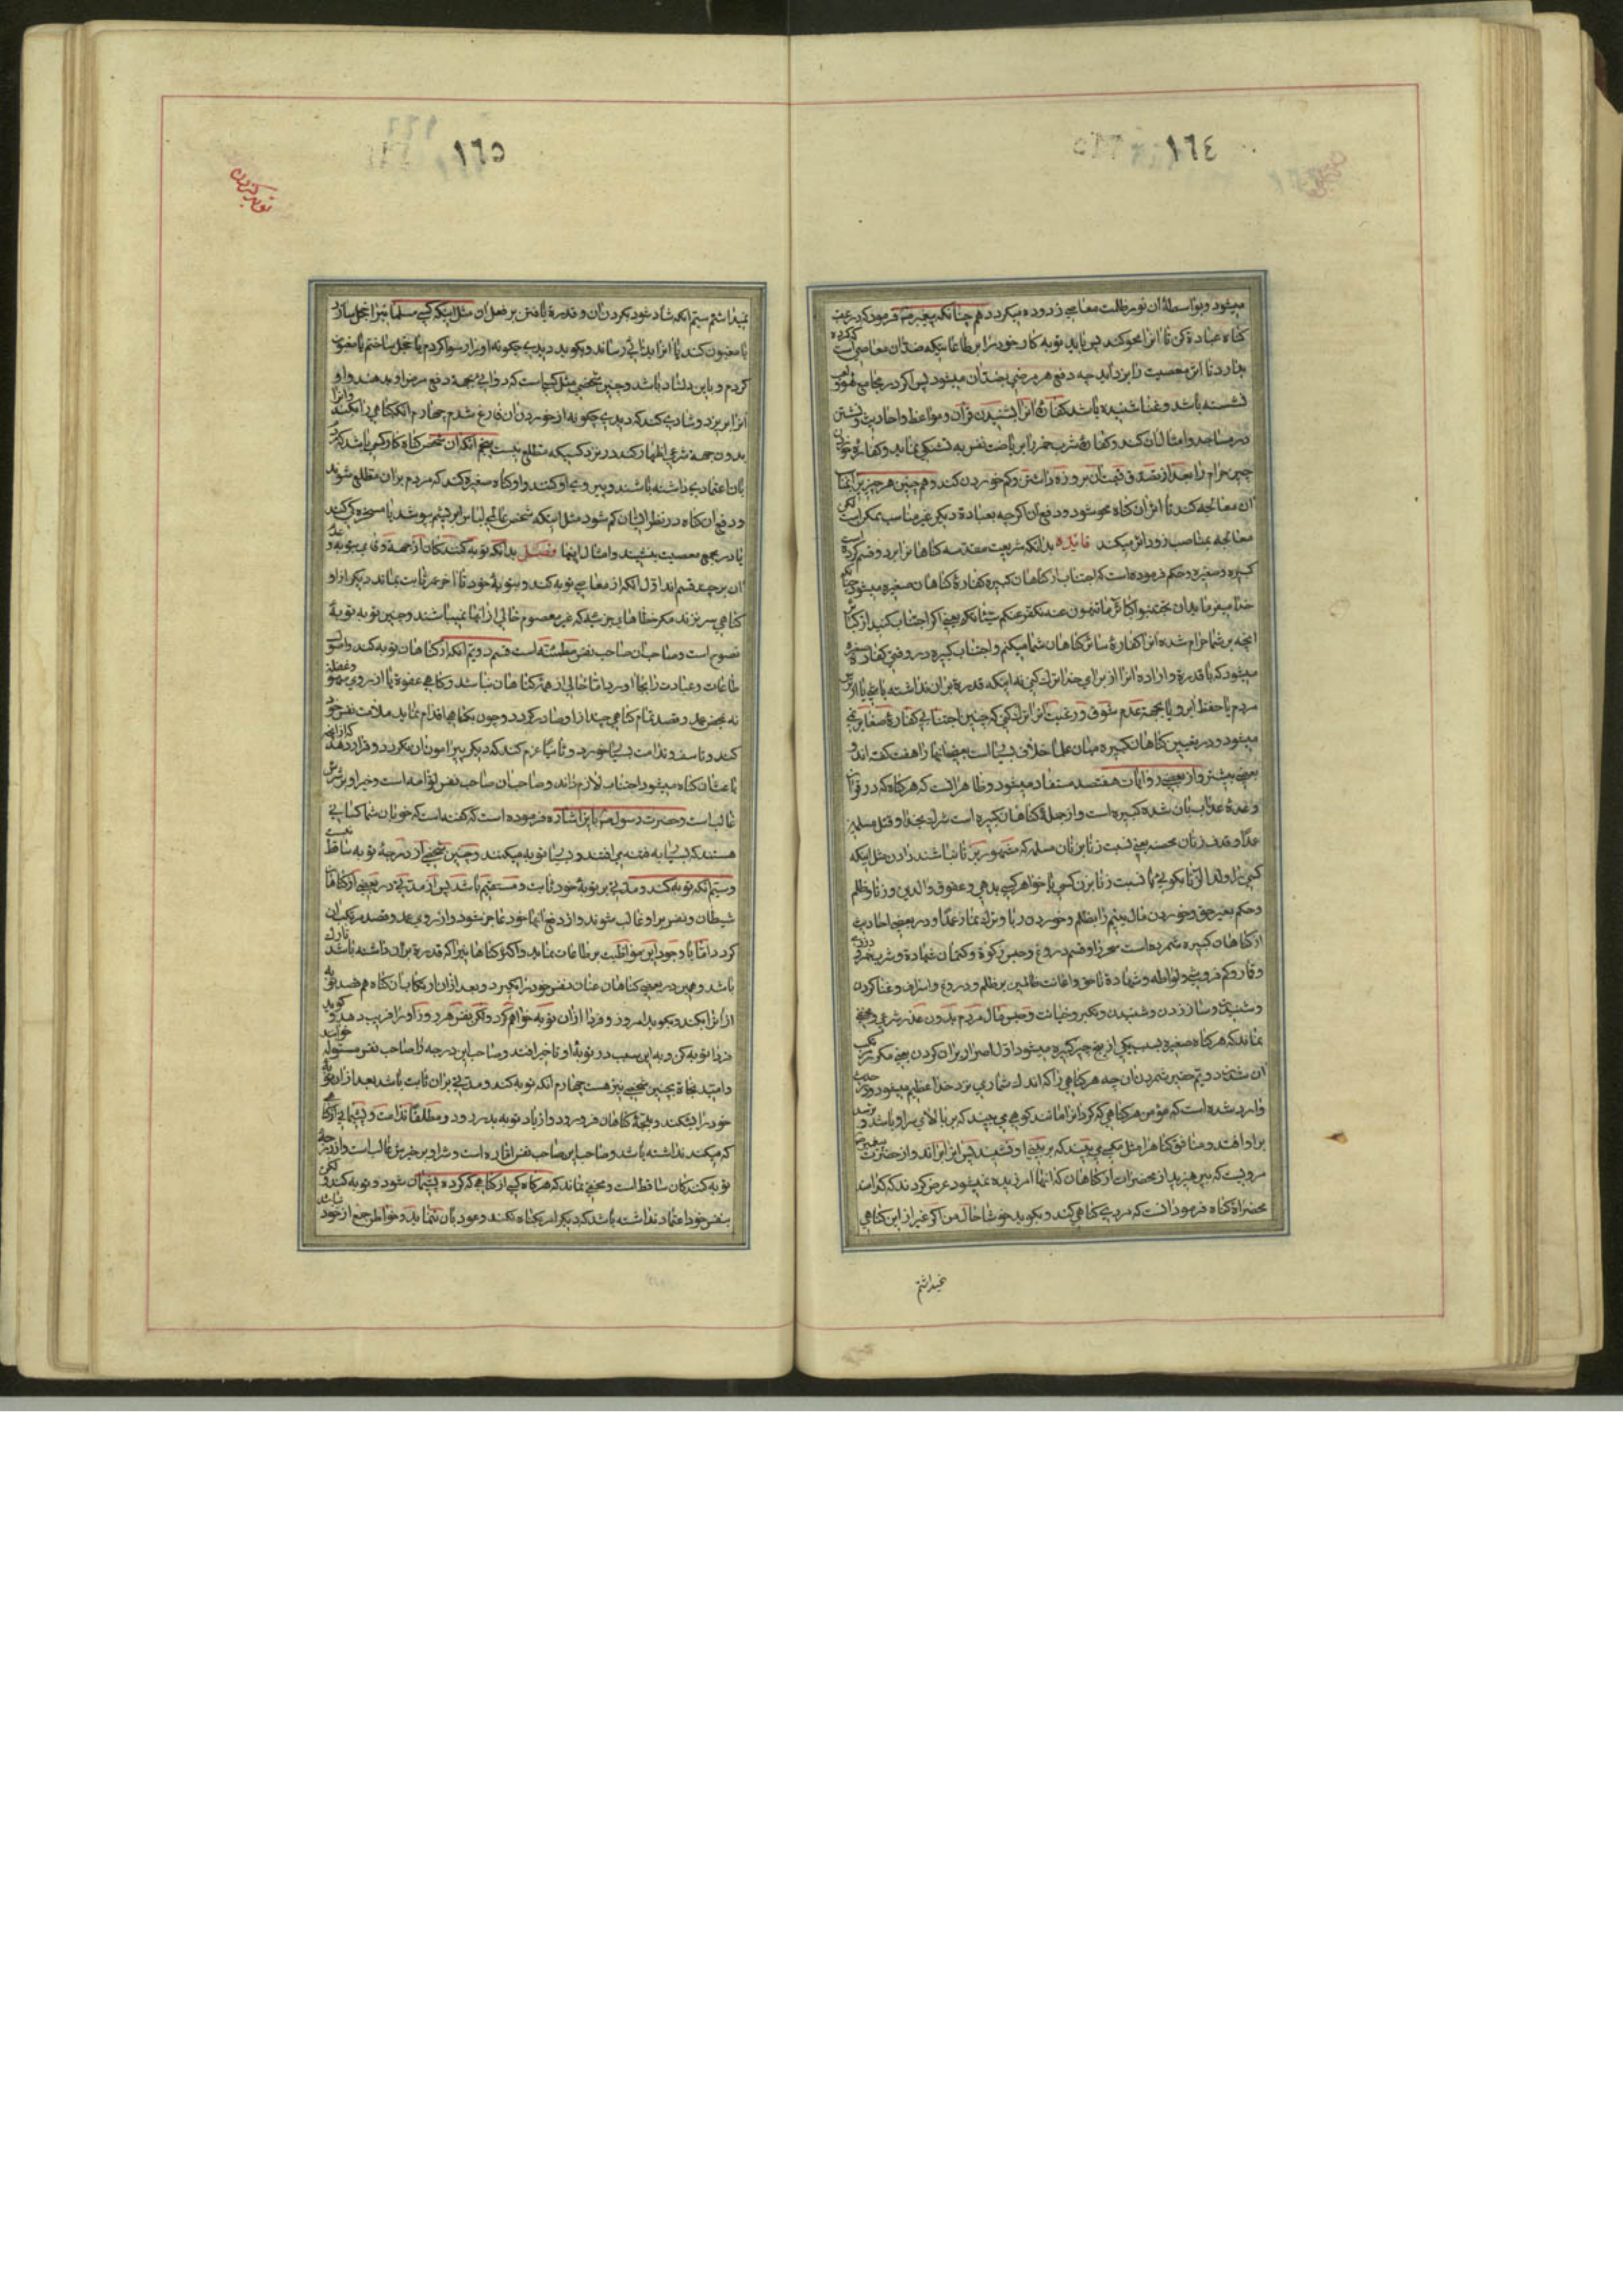 ١٦٤
میشود و بواسطهٔ ان نور ظلمت معاصی زدوده میکردد هم چنانکه پیغمبر فرمود که در عقب
کناه عبادة کن تا انرا محو کند پس باید توبه کار خود را بر طاعاتیکه ضد ان معاصی است که کرده
بدارد تا اثر معصیت را بزداید چه دفع هر مرضی بضد ان میشود پس اکر در مجامع لهو و لعب
نشسته باشد و غنا شنیده باشد کفارهٔ انرا بشنیدن قرآن و مواعظ و احادیث و نشستن
در مساجد و امثال ان کند و کفارهٔ شرب خمر را بریاضت نفس به تشنکی نماید و کفارهٔ خوردن
چیز حرام را بعد از تصدق قیمت ان بروزه داشتن و کم خوردن کند و هم چنین هر چیز را بضد
ان معالجه کند تا اثر ان کناه محو شود و دفع ان اکرچه بعبادة دیکر غیر مناسب ممکن است لکن
معالجه بمناسب زودتر اثر میکند فائده بدانکه شریعت مقدسه کناهانرا بر دو قسم کرده است
کبیره و صغیره و حکم فرموده است که اجتناب از کناهان کبیره کفارهٔ کناهان صغیره میشود چنانکه
خدا میفرماید ان تجتنبوا کبائر ما تنهون عنه نکفر عنکم سیئاتکم یعنی اکر اجتناب کنید از کبائر
انچه بر شما حرام شده انرا کفارهٔ سائر کناهان شما میکنم و اجتناب کبیره در وقتی کفارهٔ صغیره
میشود که با قدرة و اراده انرا از برای خدا ترک کنی نه اینکه قدرة بران نداشته باشی یا از ترس
مردم یا حفظ ابرو یا بجهة عدم شوق و رغبت انرا ترک کنی که چنین اجتنابی کفارهٔ صغایر نمی
میشود و در تعیین کناهان کبیره میان علما خلاف بسیار است بعضی انها را هفت کفته اند و
بعضی بیشتر و از بعضی روایات هفتصد مستفاد میشود و ظاهر انست که هر کناه که در قران
وعدهٔ عذاب بان شده کبیره است و از جملهٔ کناهان کبیره است شرک بخدا و قتل مسلم
عمداً و قذف زنان محصنه یعنی نسبت زنا بزنان مسلمه که مشهور بزنا نباشند دادن مثل اینکه
کسی را ولد الزنا بکوئی یا نسبت زنا بزن کسی یا خواهر کسی بدهی و عقوق والدین و زنا و ظلم
و حکم بغیر حق و خوردن مال یتیم را بظلم و خوردن ربا و ترک نماز عمداً و در بعضی احادیث
از کناهان کبیره شمرده است سحر را و قسم دروغ و حبس زکوة و کتمان شهادة و شرب خمر و دزدی
و قمار و کم فروشی و لواطه و شهادة ناحق و اعانت ظالمین بر ظلم و دروغ و اسراف و غنا کردن
و شنیدن و ساز زدن و شنیدن و تکبر و خیانت و حبس مال مردم بدون عذر شرعی و مخفی
نماند که هر کناه صغیره بسبب یکی از پنج چیز کبیره میشود اول اصرار بران کردن یعنی مکرر مرتکب
ان شدن دویم حقیر شمردن ان چه هر کناهی را که اندک شماری نزد خدا عظیم میشود و در حدیث
وارد شده است که مؤمن هر کناهی که کرد انرا مانند کوهی می بیند که بر بالای سر او باشد و بترسد
بر او افتد و منافق کناه را مثل مکسی می بیند که بر بینی او نشیند پس انرا براند و از حضرت پیغمبر
مرویست که بپرهیزید از محقرات از کناهان که انها امرزیده نمیشود عرض کردند که کدامند
محقرات کناه فرمود انست که مردی کناهی کند و بکوید خوشا حال من اکر غیر از این کناهی
نمیداشتم
١٦٥
توبه کردن
نمیداشتم سیم انکه شاد شود بکردن ان و قدرة یافتن بر فعل ان مثل اینکه کسی مسلمانیرا خجل سازد
یا مغبون کند یا انرا بدنامی رساند و بکوید دیدی چکونه او را رسوا کردم یا خجل ساختم یا مغبون
کردم و باین دلشاد باشد و چنین شخصی مثل کسی است که دوایی بجهة دفع مرض او بدهند و او
انرا بریزد و شادی کند که دیدی چکونه از خوردن ان فارغ شدم چهارم انکه کناهی را که کند و انرا
بدون جهة شرعی اظهار کند در نزد کسیکه مطلع نیست پنجم انکه ان شخص کناه کار کسی باشد که مردم
بان اعتمادی داشته باشند و پیروی او کنند و او کناه صغیره کند که مردم بران مطلع شوند
و وقع ان کناه در نظر ایشان کم شود مثل اینکه شخص عالمی لباس ابریشم بپوشد یا مسخره کی کند
یا در مجمع معصیت بنشیند و امثال اینها فصل بدانکه توبه کنندکان از جهة وفای بتوبه و عدم
ان بر چهار قسم اند اول انکه از معاصی توبه کند و بتوبهٔ خود تا اخر عمر ثابت بماند و دیکر از او
کناهی سر نزند مکر خطاهای جزئیه که غیر معصوم خالی از انها نمیباشند و چنین توبه توبهٔ
نصوح است و صاحب ان صاحب نفس مطمئنه است قسم دویم انکه از کناهان توبه کند و اصول
طاعات و عبادت را بجا اورد اما خالی از همهٔ کناهان نباشد و کاهی عفوة یا از روی سهو و غفلة
نه بمحض عمد و قصد تمام کناهی چند از او صادر کردد و چون بکناهی اقدام نماید ملامت نفس خود
کند و تاسف و ندامت بسیار خورد و ثانیا عزم کند که دیکر پیرامون ان نکردد و قرار دهد که از انچه
باعث ان کناه میشود اجتناب لازم داند و صاحب ان صاحب نفس لوامه است و خیر او بر شرش
غالب است و حضرت رسول باین اشاره فرموده است که کفته است که خوبان شما کسانی
هستند که بسیار به فتنه می افتند و بسیار توبه میکنند و چنین شخصی از درجهٔ توبه ساقط نیست
و سیم انکه توبه کند و مدتی بر توبهٔ خود ثابت و مستقیم باشد پس از مدتی در بعضی از کناهان
شیطان و نفس بر او غالب شوند و از دفع انها خود عاجز شود و از روی عمد و قصد مرتکب ان
کردد اما با وجود این مواظبت بر طاعات نماید و اکثر کناهانیرا که قدرة بران داشته باشد تارک
باشد و همین در بعضی کناهان عنان نفس خود را نکیرد و بعد از ان ارتکاب ان کناه هم قصد توبه
از انرا بکند و بکوید امروز و فردا ازان توبه خواهم کرد و لکن نفس هر روز او را فریب دهد و کوید
فردا توبه کن و به این سبب در توبهٔ او تاخیر افتد و صاحب این درجه را صاحب نفس مسوله خوانند
و امید نجاة بچنین شخصی نیز هست چهارم انکه توبه کند و مدتی بران ثابت باشد بعد ازان توبهٔ
خود را بشکند و بلجهٔ کناهان فرو رود و از یاد توبه بدر رود و مطلقاً ندامت و پشیمانی از کناهی
که میکند نداشته باشد و صاحب این صاحب نفس اماره است و شر او بر خیرش غالب است و از درجهٔ
توبه کنندکان ساقط است و مخفی نماند که هرکاه کسی از کناهی که کرده پشیمان شود و توبه کند و لکن
بنفس خود اعتماد نداشته باشد که دیکر این کناه نکند و عود بان ننماید و خواطر جمع از خود نباشد